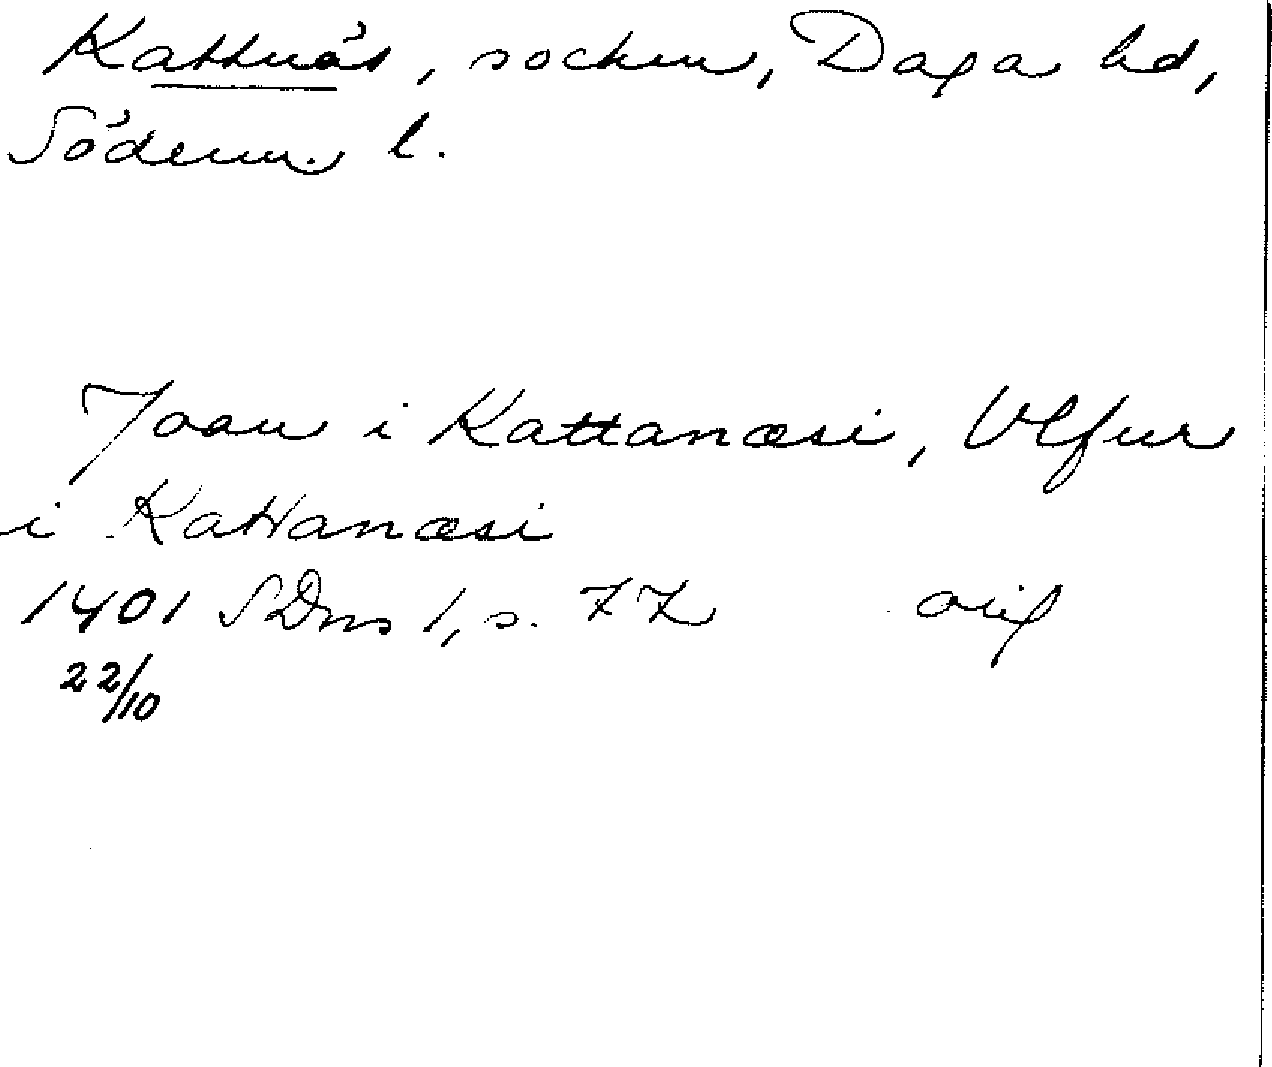 Kattnäs, socken, Daga hd,
Söderm. l.
Joan i Kattanæsi, Vlfur
i Kattanæsi
1401 SDns 1, s. 77 orig
22/10